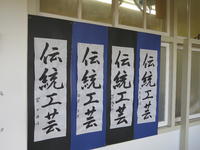 伝統工芸
伝統工芸
伝統工芸
伝統工芸